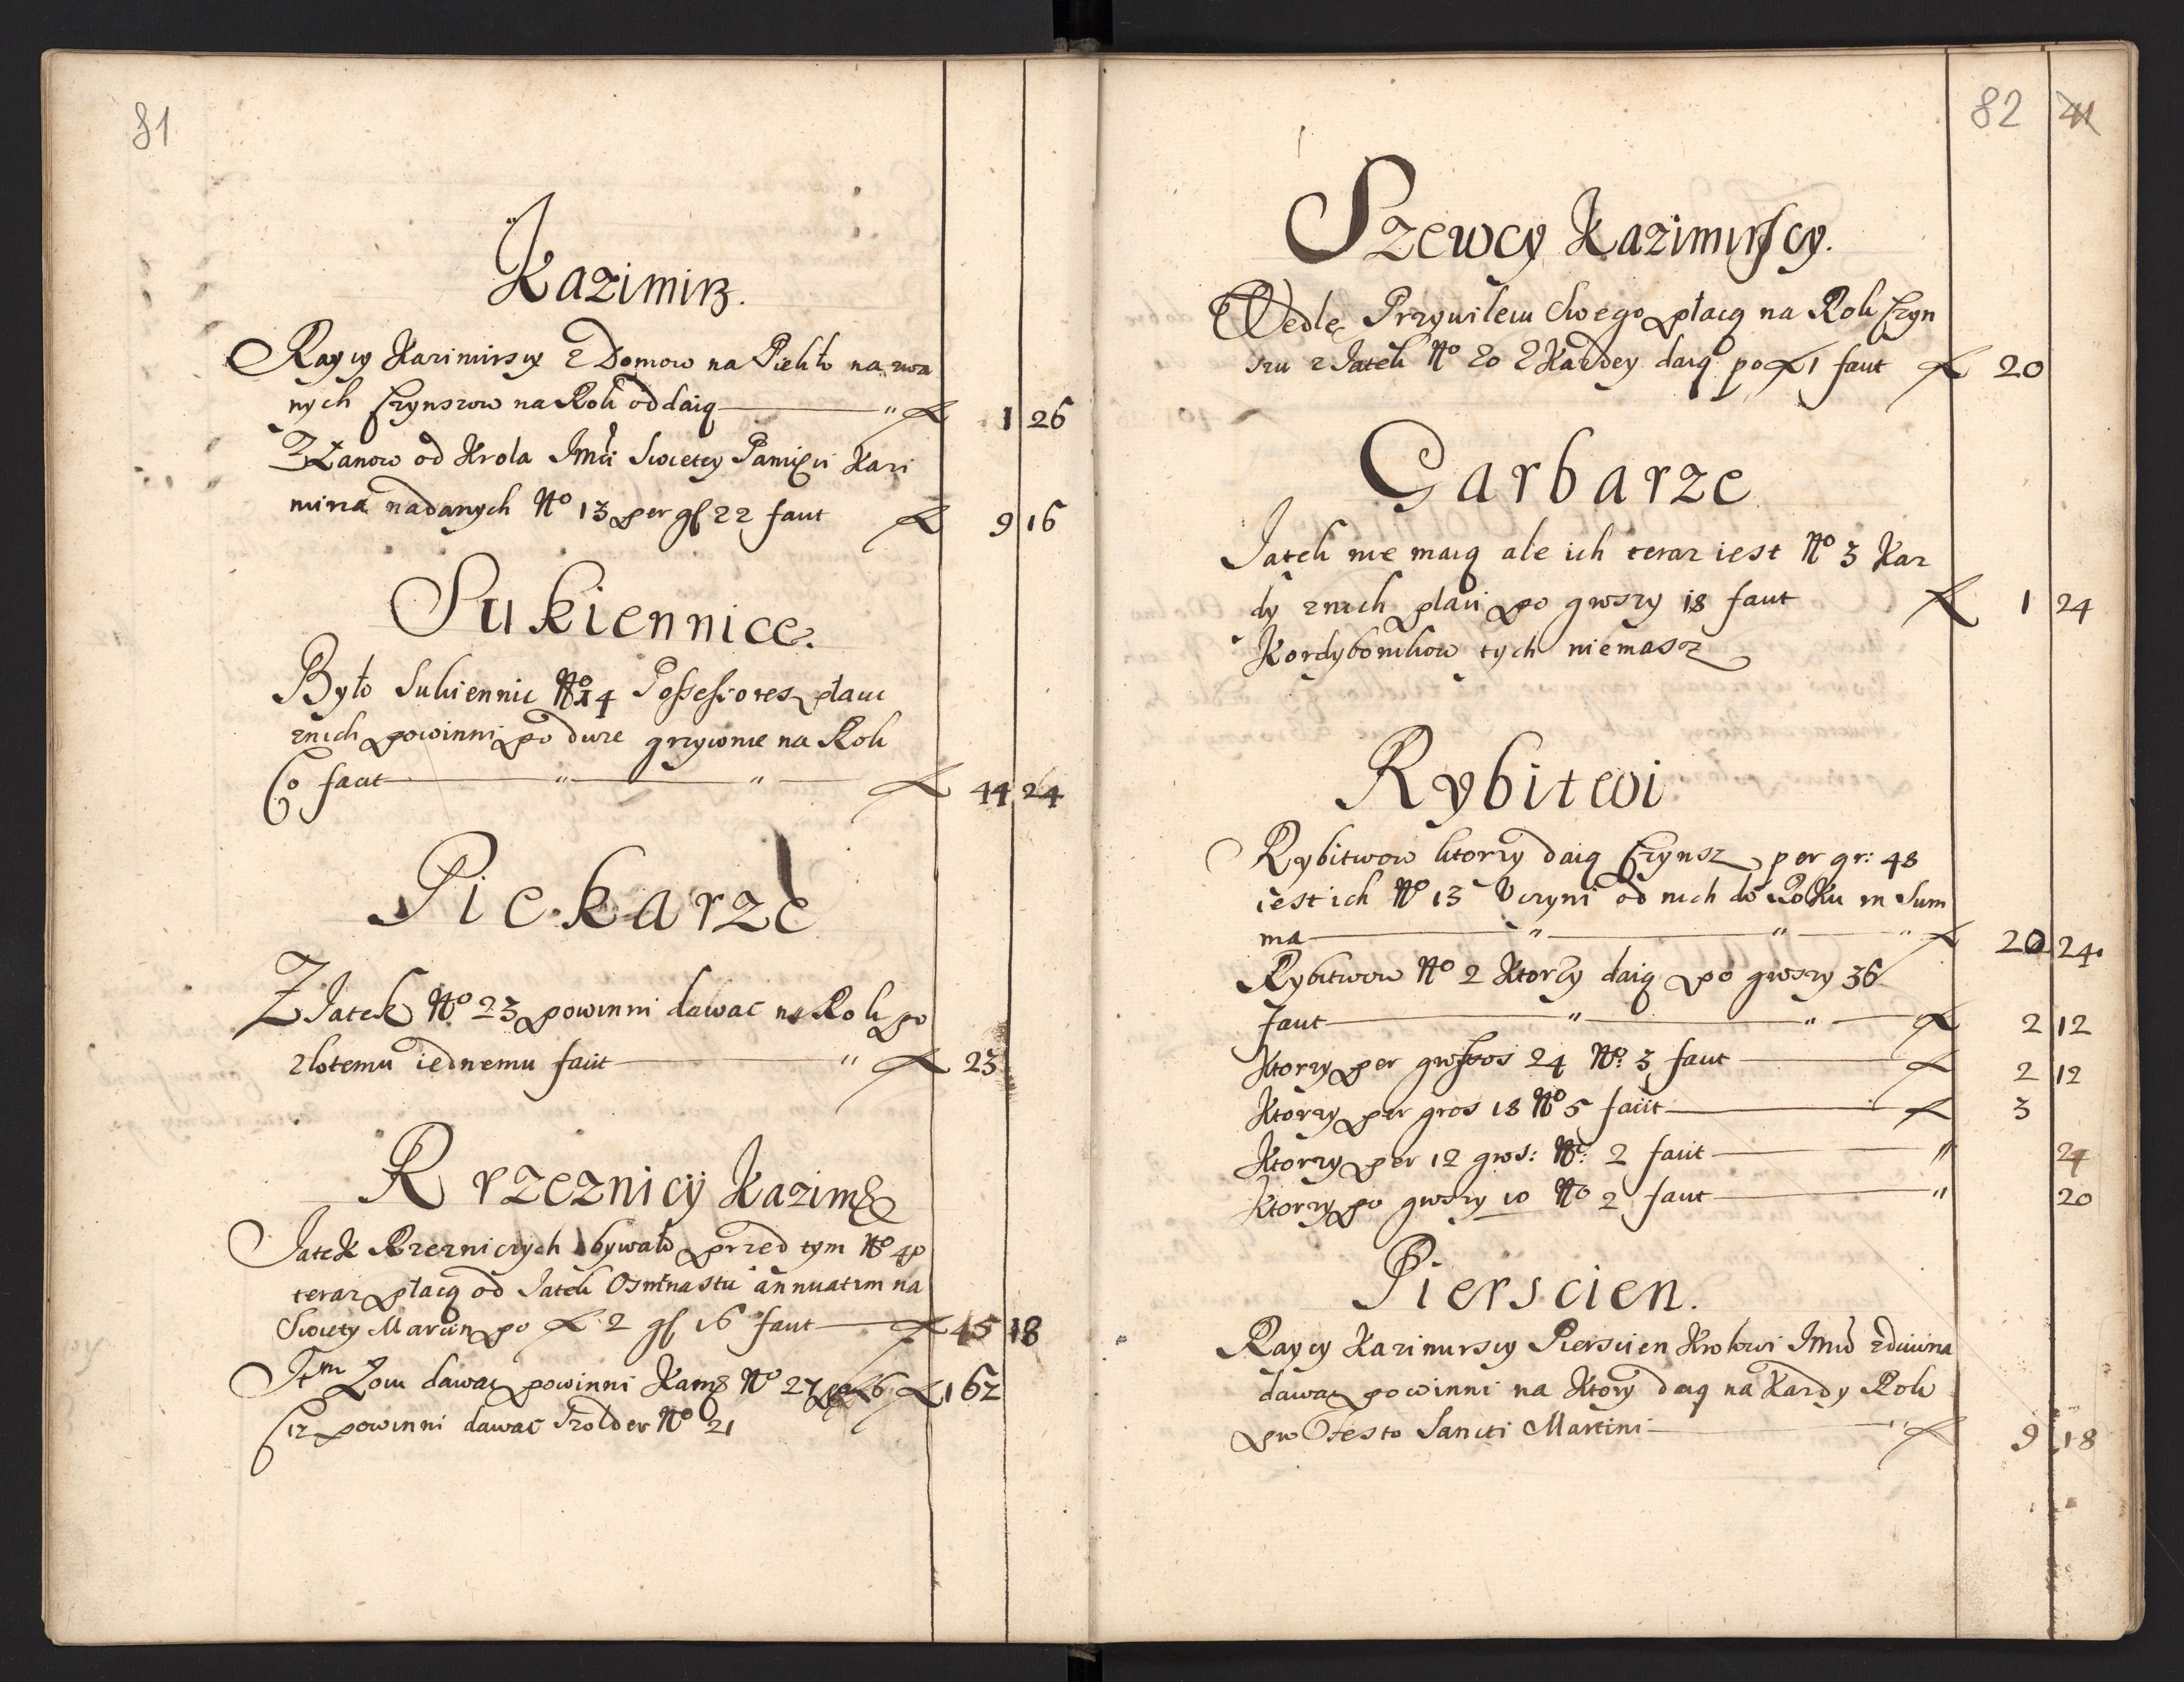 81
Kazimirz.
Raycy Kazimirscy z Domow na Piekło na zwa
nych Czynszow na Rok oddaią " fl 1 26
Z Łanow od Krola Jmći Swietey Pamięci Kazi
mirza nadanych No 13 per gs 22 faut fl 9 16
Sukiennice.
Było Sukiennic No 14 Possessores płacić
znich powinni po dwie grzywnie na Rok
Co faut " " fl 44 24
Piekarze
Z Jatek No 23 powinni dawac na Rok po
złotemu iednemu faciit " fl 23
Rrzeznicÿ Kazim
Jatek Rzezniczych bywało przed tym No 40
teraz płacą od Jatek Osmnastu annuatim na
Swiety Marcin po fl 2 gs 16 faut fl 45 18
Itm Łoiu dawac powinni Kam No 27 fl 6 fl 162
Ciz powinni dawac Szolder No 21
82 41
Szewcy Kazimirscy.
Wedlę Przywileiu Swego płacą na Rok Czyn
szu z Jatek No 20 z Kazdey daią po fl 1 faut fl 20
Garbarze
Jatek nie maią ale ich teraz iest No 3 Kaz
dy znich płaci po groszy 18 faut fl 1 24
Kordybonikow tych niemasz
Rybitwi
Rybitwow ktorzy daią Czynsz per gr: 48
iest ich No 13 Uczyni od nich do Roku in Sum
ma " " " fl 20 24.
Rybitwow No 2 Ktorzy daią po groszy 36
faut " " fl 2 12
Ktorzy per grossos 24 No: 3 faut fl 2 12
Ktorzy per gros 18 No 5 faciit fl 3
Ktorzy per 12 gros: No: 2 faciit " 24
Ktorzy po groszy 10 No 2 faut " 20
Pierscien.
Raycy Kazimirscy Pierscien Krolowi Jmci zdawna
dawac powinni na Ktory daią na Kazdy Rok
pro Festo Sancti Martini " fl 9 18